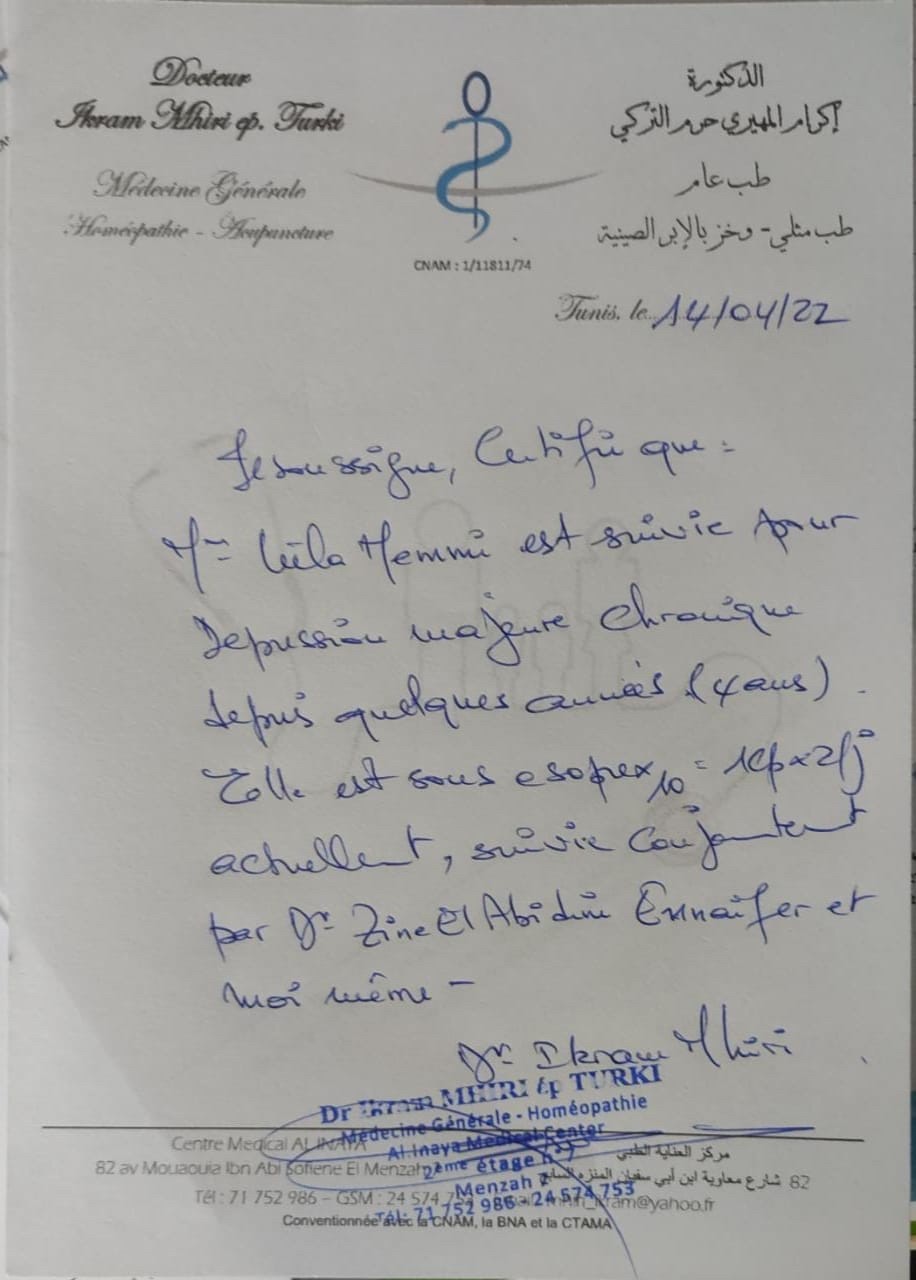 Docteur
Ikram Mhiri ep. Turki
Médecine Générale
Homéopathie - Acupuncture
الدكتورة
إكرام المهيري حرم التركي
طب عام
طب مثلي - وخز بالإبر الصينية
CNAM : 1/11811/74
Tunis, le 14/04/22
Je soussigne, Certifie que :
Mme Leila Memmi est suivie pour
Depression majeure chronique
depuis quelques années (4 ans).
Elle est sous esoprex 10 = 1cp x 2/j
actuellent, suivie conjointent
par Dr Zine El Abidine Ennaifer et
moi même -
Dr Ikram Mhiri
Dr Ikram MHIRI ép TURKI
Médecine Générale - Homéopathie
Al Inaya Medical Center
2ème étage
Menzah 7
Tél: 71 752 986 - 24 574 753
Centre Medical AL INAYA
مركز العناية الطبي
82 av Mouaouia Ibn Abi Sofiene El Menzah
82 شارع معاوية ابن أبي سفيان المنزه السابع
Tél : 71 752 986 - GSM : 24 574
@yahoo.fr
Conventionnée avec la CNAM, la BNA et la CTAMA